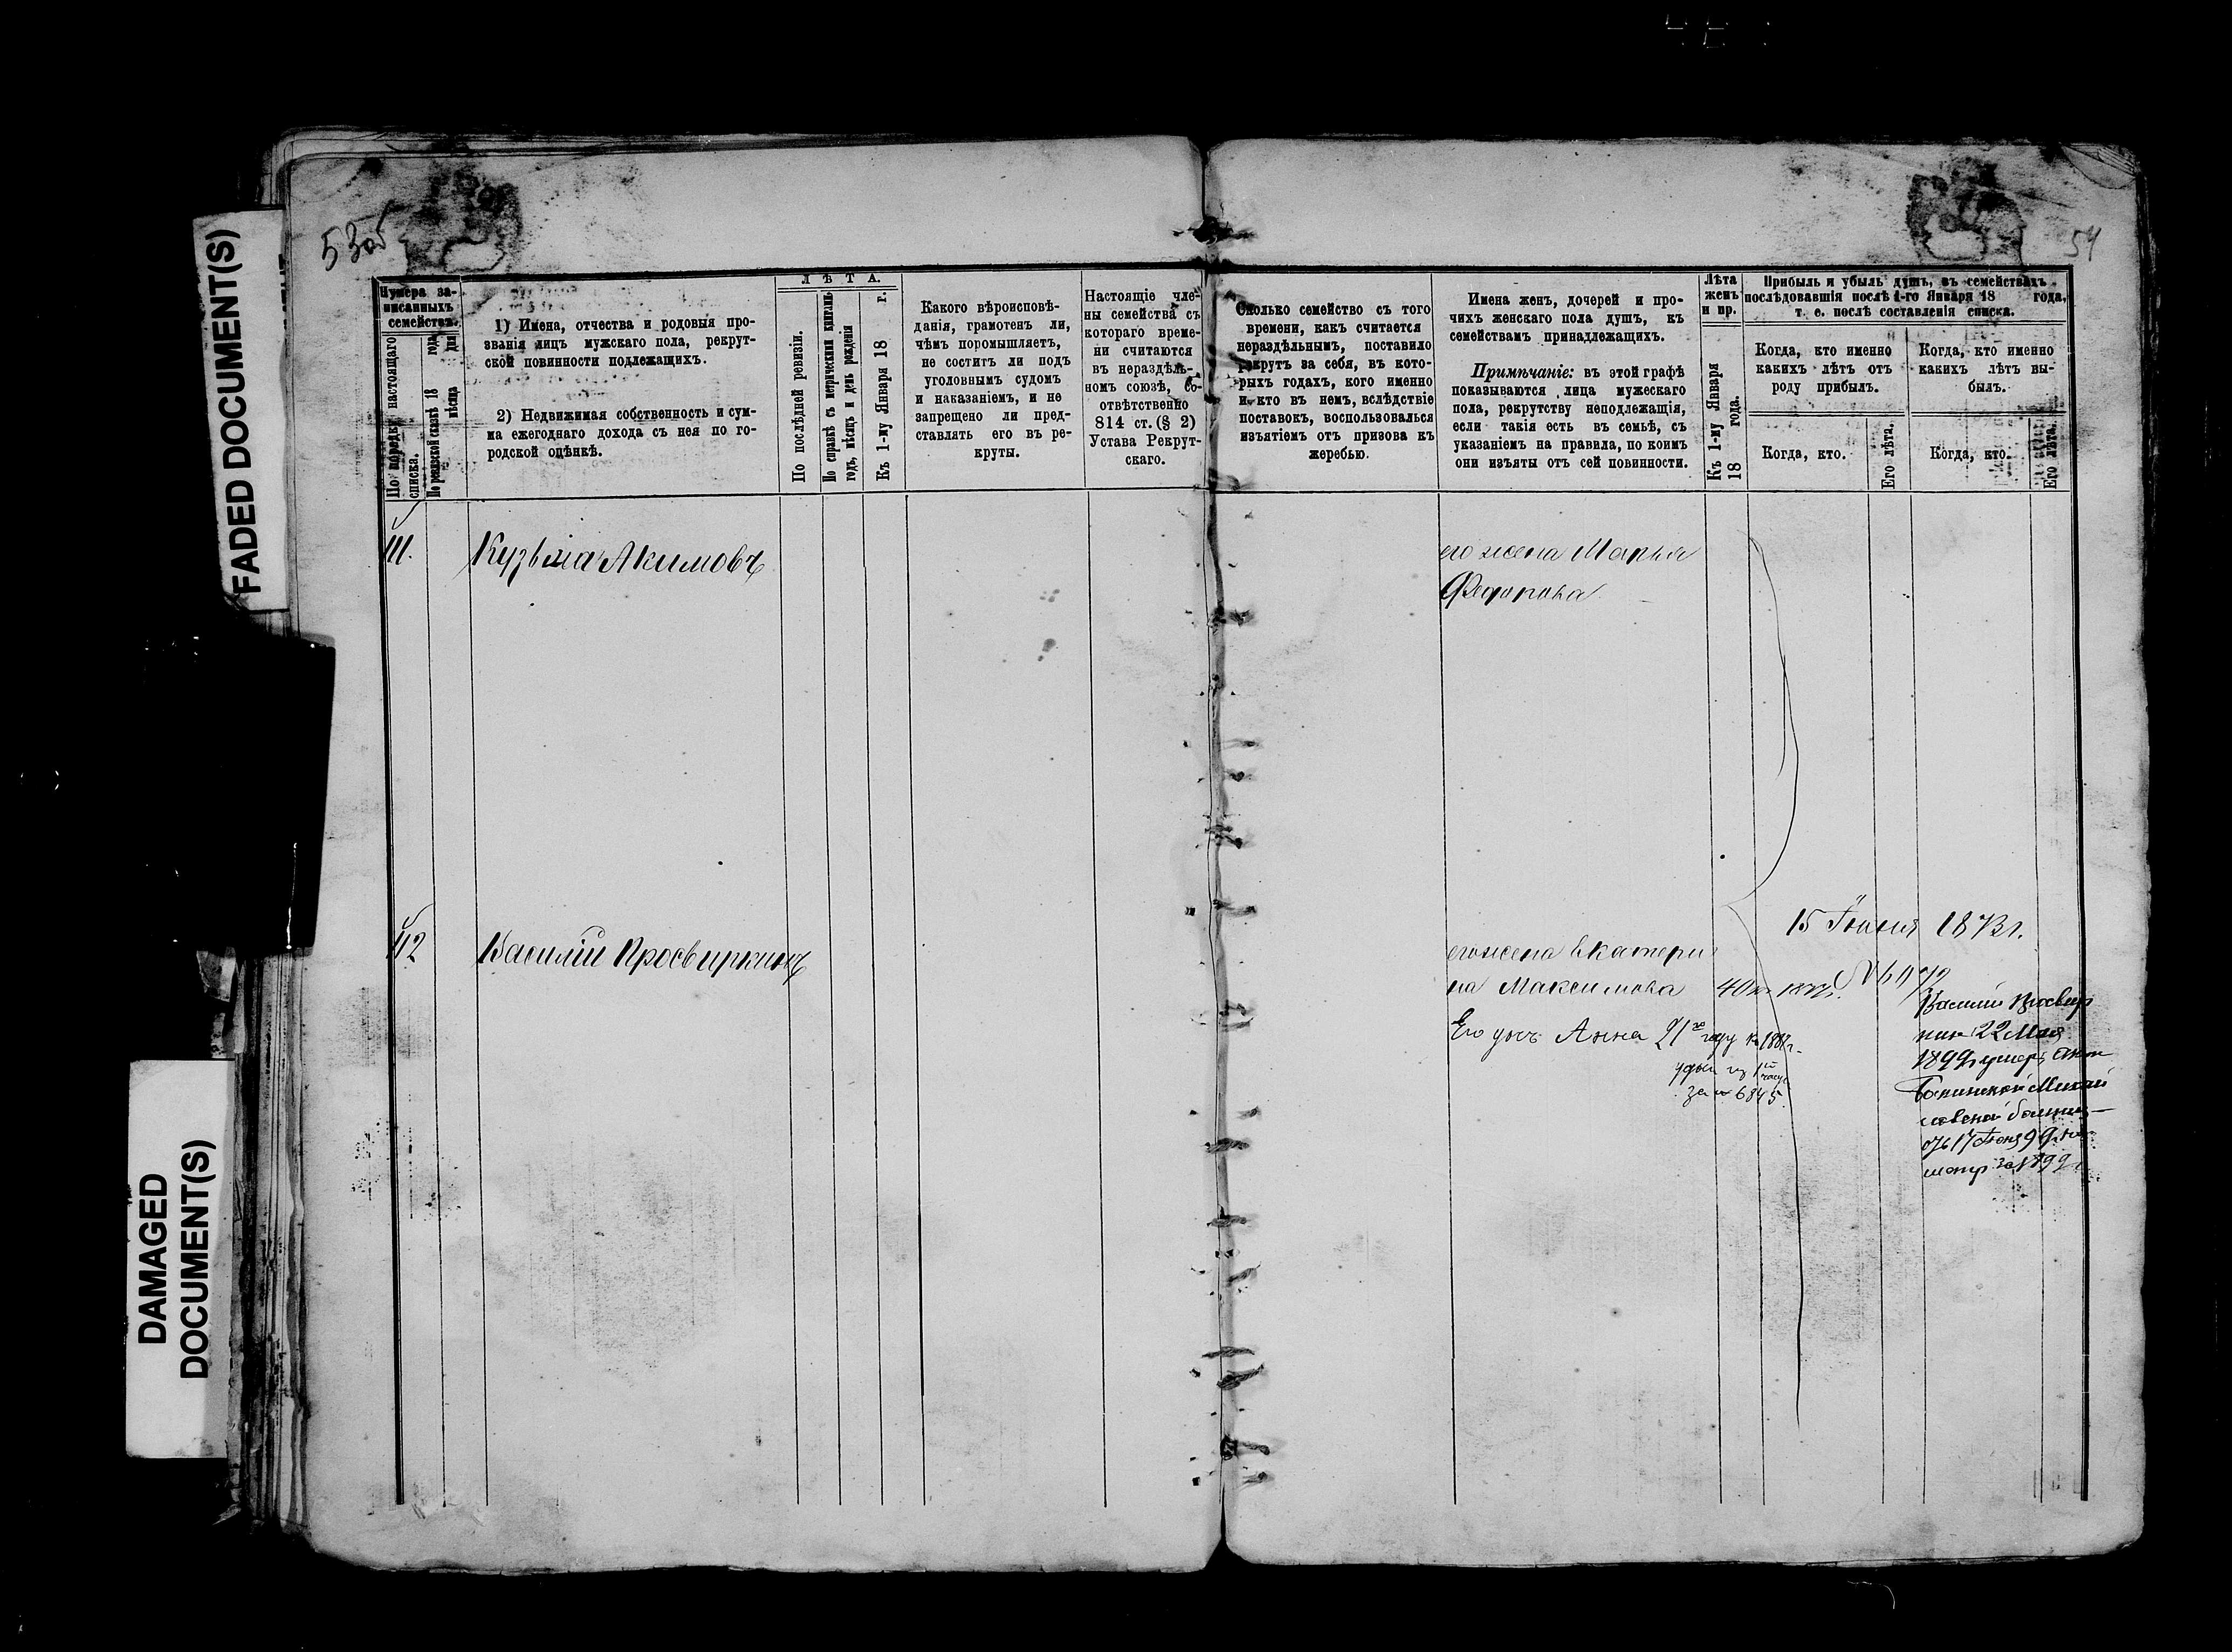 FADED DOCUMENT(S)
DAMAGED
DOCUMENT(S)
53об
54
Нумера за-
писанныхъ
семействъ.
По порядку настоящаго
списка.
По ревизской сказкѣ 18 года
мѣсяца дня
1) Имена, отчества и родовыя про-
званія лицъ мужскаго пола, рекрут-
ской повинности подлежащихъ.
2) Недвижимая собственность и сум-
ма ежегоднаго дохода съ нея по го-
родской оцѣнкѣ.
ЛѢТА.
По послѣдней ревизіи.
По справкѣ съ метрическими книгами
годъ, мѣсяцъ и день рожденія
Къ 1-му Января 18 г.
Какого вѣроисповѣ-
данія, грамотенъ ли,
чѣмъ поромышляетъ,
не соститъ ли подъ
уголовнымъ судомъ
и наказаніемъ, и не
запрещено ли пред-
ставлять его въ ре-
круты.
Настоящіе чле-
ны семейства съ
котораго време-
ни считаются
въ нераздѣль-
номъ союзѣ, со-
отвѣтственно
814 ст. (§ 2)
Устава Рекрут-
скаго.
Сколько семейство съ того
времени, какъ считается
нераздѣльнымъ, поставило
рекрутъ за себя, въ кото-
рыхъ годахъ, кого именно
и кто въ немъ, вслѣдствіе
поставокъ, воспользовалься
изъятіемъ отъ призова къ
жеребью.
Имена женъ, дочерей и про-
чихъ женскаго пола душъ, къ
семействамъ принадлежащихъ.
Примѣчаніе: въ этой графѣ
показываются лица мужескаго
пола, рекрутству неподлежащія,
если такія есть въ семьѣ, съ
указаніемъ на правила, по коимъ
они изъяты отъ сей повинности.
Лѣта
женъ
и пр.
Къ 1-му Января
18 года.
Прибыль и убыль душъ, въ семействахъ
послѣдовавшія послѣ 1-го Января 18 года,
т. е. послѣ составленія списка.
Когда, кто именно
какихъ лѣтъ отъ
роду прибылъ.
Когда, кто именно
какихъ лѣтъ вы-
былъ.
Когда, кто.
Его лѣта.
Когда, кто.
Его лѣта.
111.
Кузьма Акимовъ
его жена Марья
Федорова
112
Василій Просвиркинъ
15 Іюня 1873 г.
его жена Екатери
на Максимова 40
Его дочь Анна 21 году къ 1881 г.
за № 6845
22 Мая
1899 умеръ
17 Іюня 99
за 1899